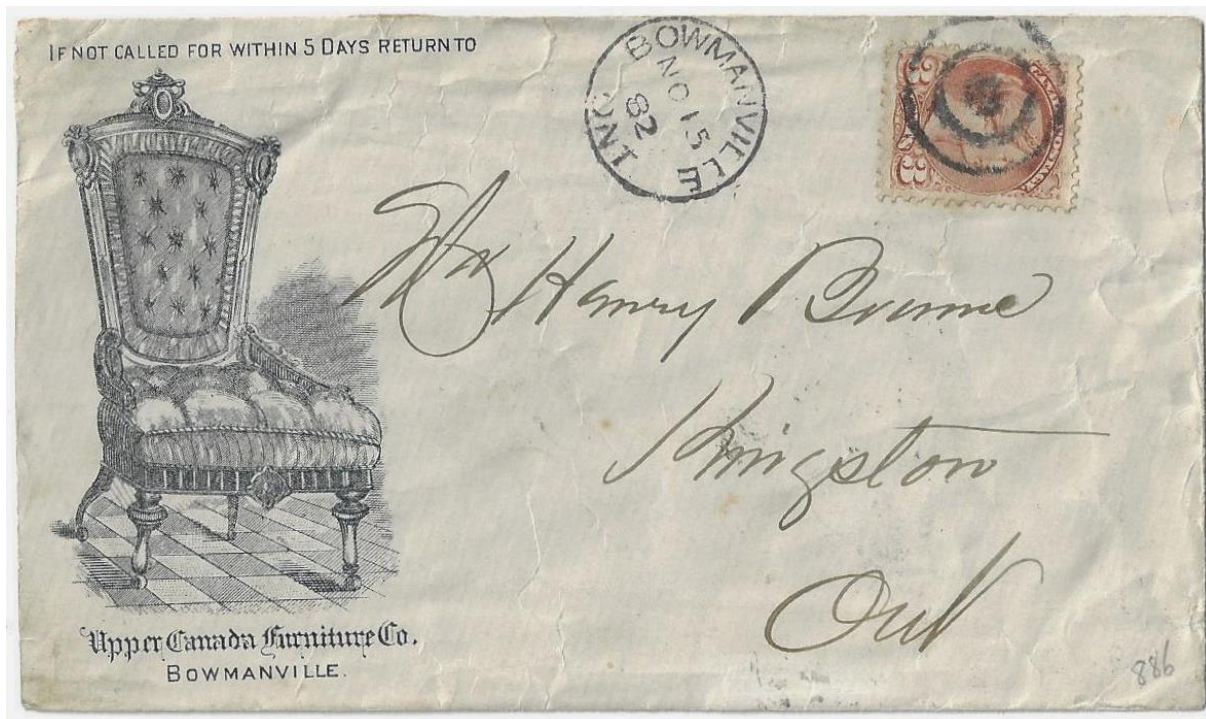 IF NOT CALLED FOR WITHIN 5 DAYS RETURN TO
BOWMANVILLE ONT
NO 15
82
3 3
Henry
Kingston
Ont
Upper Canada Furniture Co.
BOWMANVILLE.
886